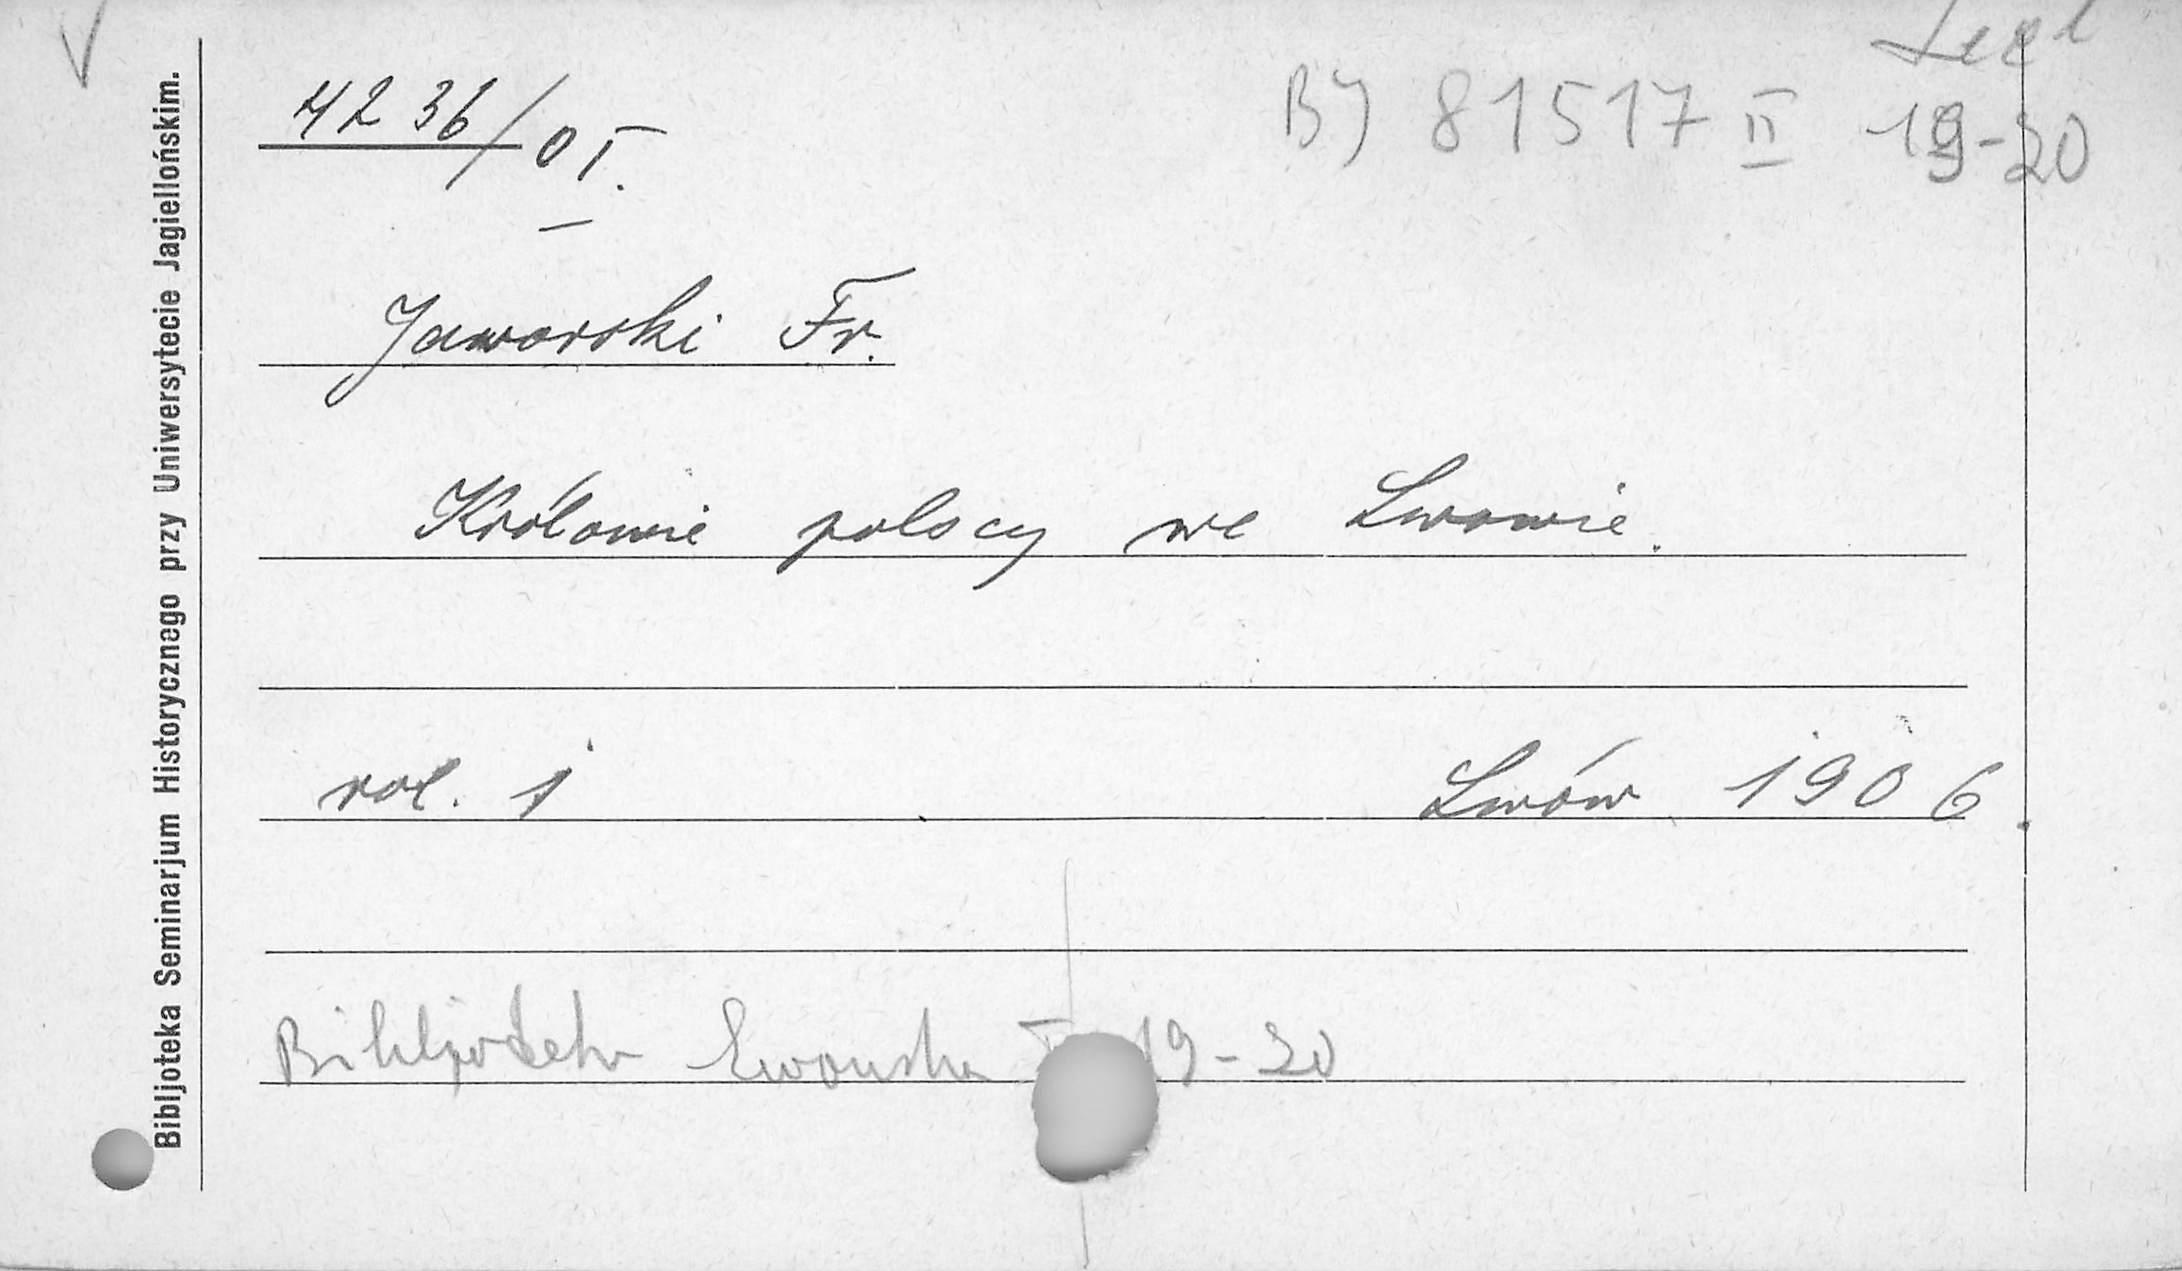 4236/OI.
BJ 81517 II 19-20
Jaworski Fr.
Królowie polscy we Lwowie.
vol. 1 Lwów 1906.
Bibljoteka Lwowska T 19-20
Bibljoteka Seminarjum Historycznego przy Uniwersytecie Jagiellońskim.